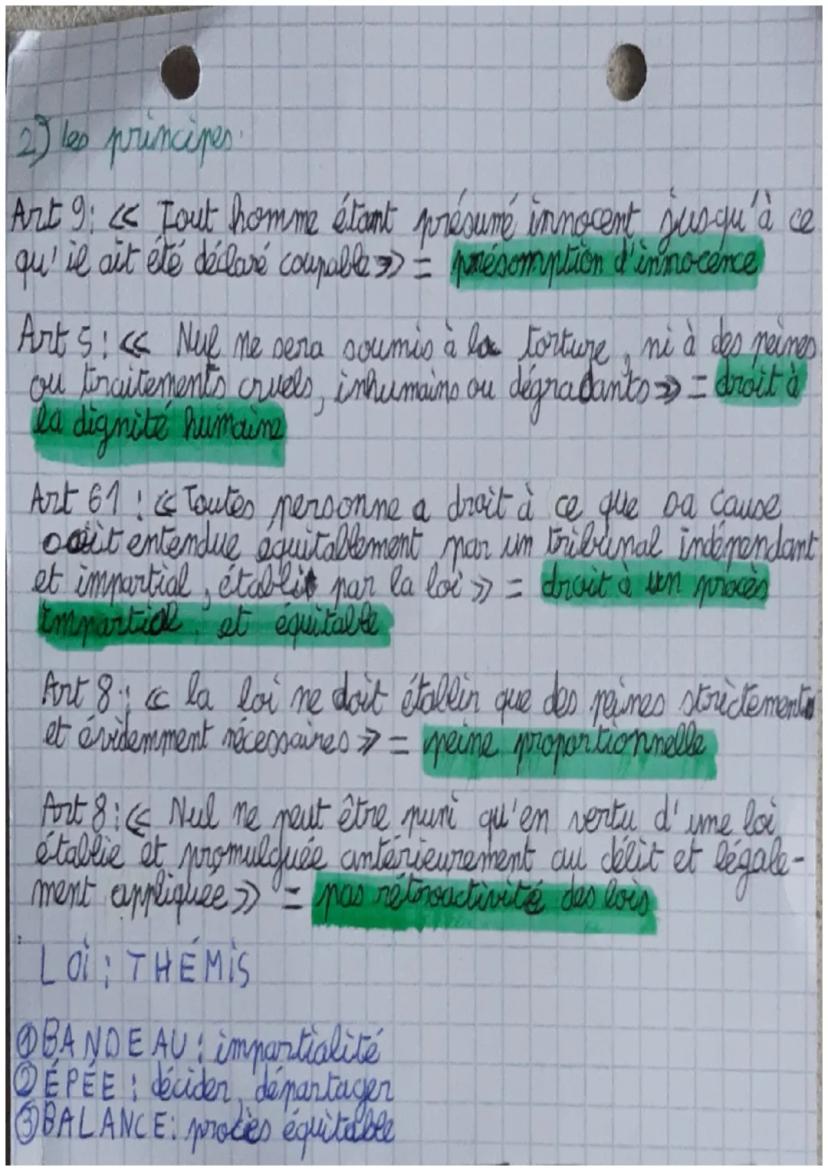 2) les principes.
Art 9: « Tout homme étant présumé innocent jusqu'à ce
qu'il ait été déclaré coupable » = présomption d'innocence
Art 5: « Nul ne sera soumis à la torture, ni à des peines
ou traitements cruels, inhumains ou dégradants » = droit à
la dignité humaine
Art 61: « Toutes personne a droit à ce que sa cause
soit entendue équitablement par un tribunal indépendant
et impartial, établit par la loi » = droit à un procès
impartial et équitable
Art 8: « la loi ne doit établir que des peines strictement
et évidemment nécessaires » = peine proportionnelle
Art 8: « Nul ne peut être puni qu'en vertu d'une loi
établie et promulguée antérieurement au délit et légale-
ment appliquée » = pas rétroactivité des lois
Loi: THÉMIS
① BANDEAU: impartialité
② ÉPÉE: décider, départager
③ BALANCE: procès équitable